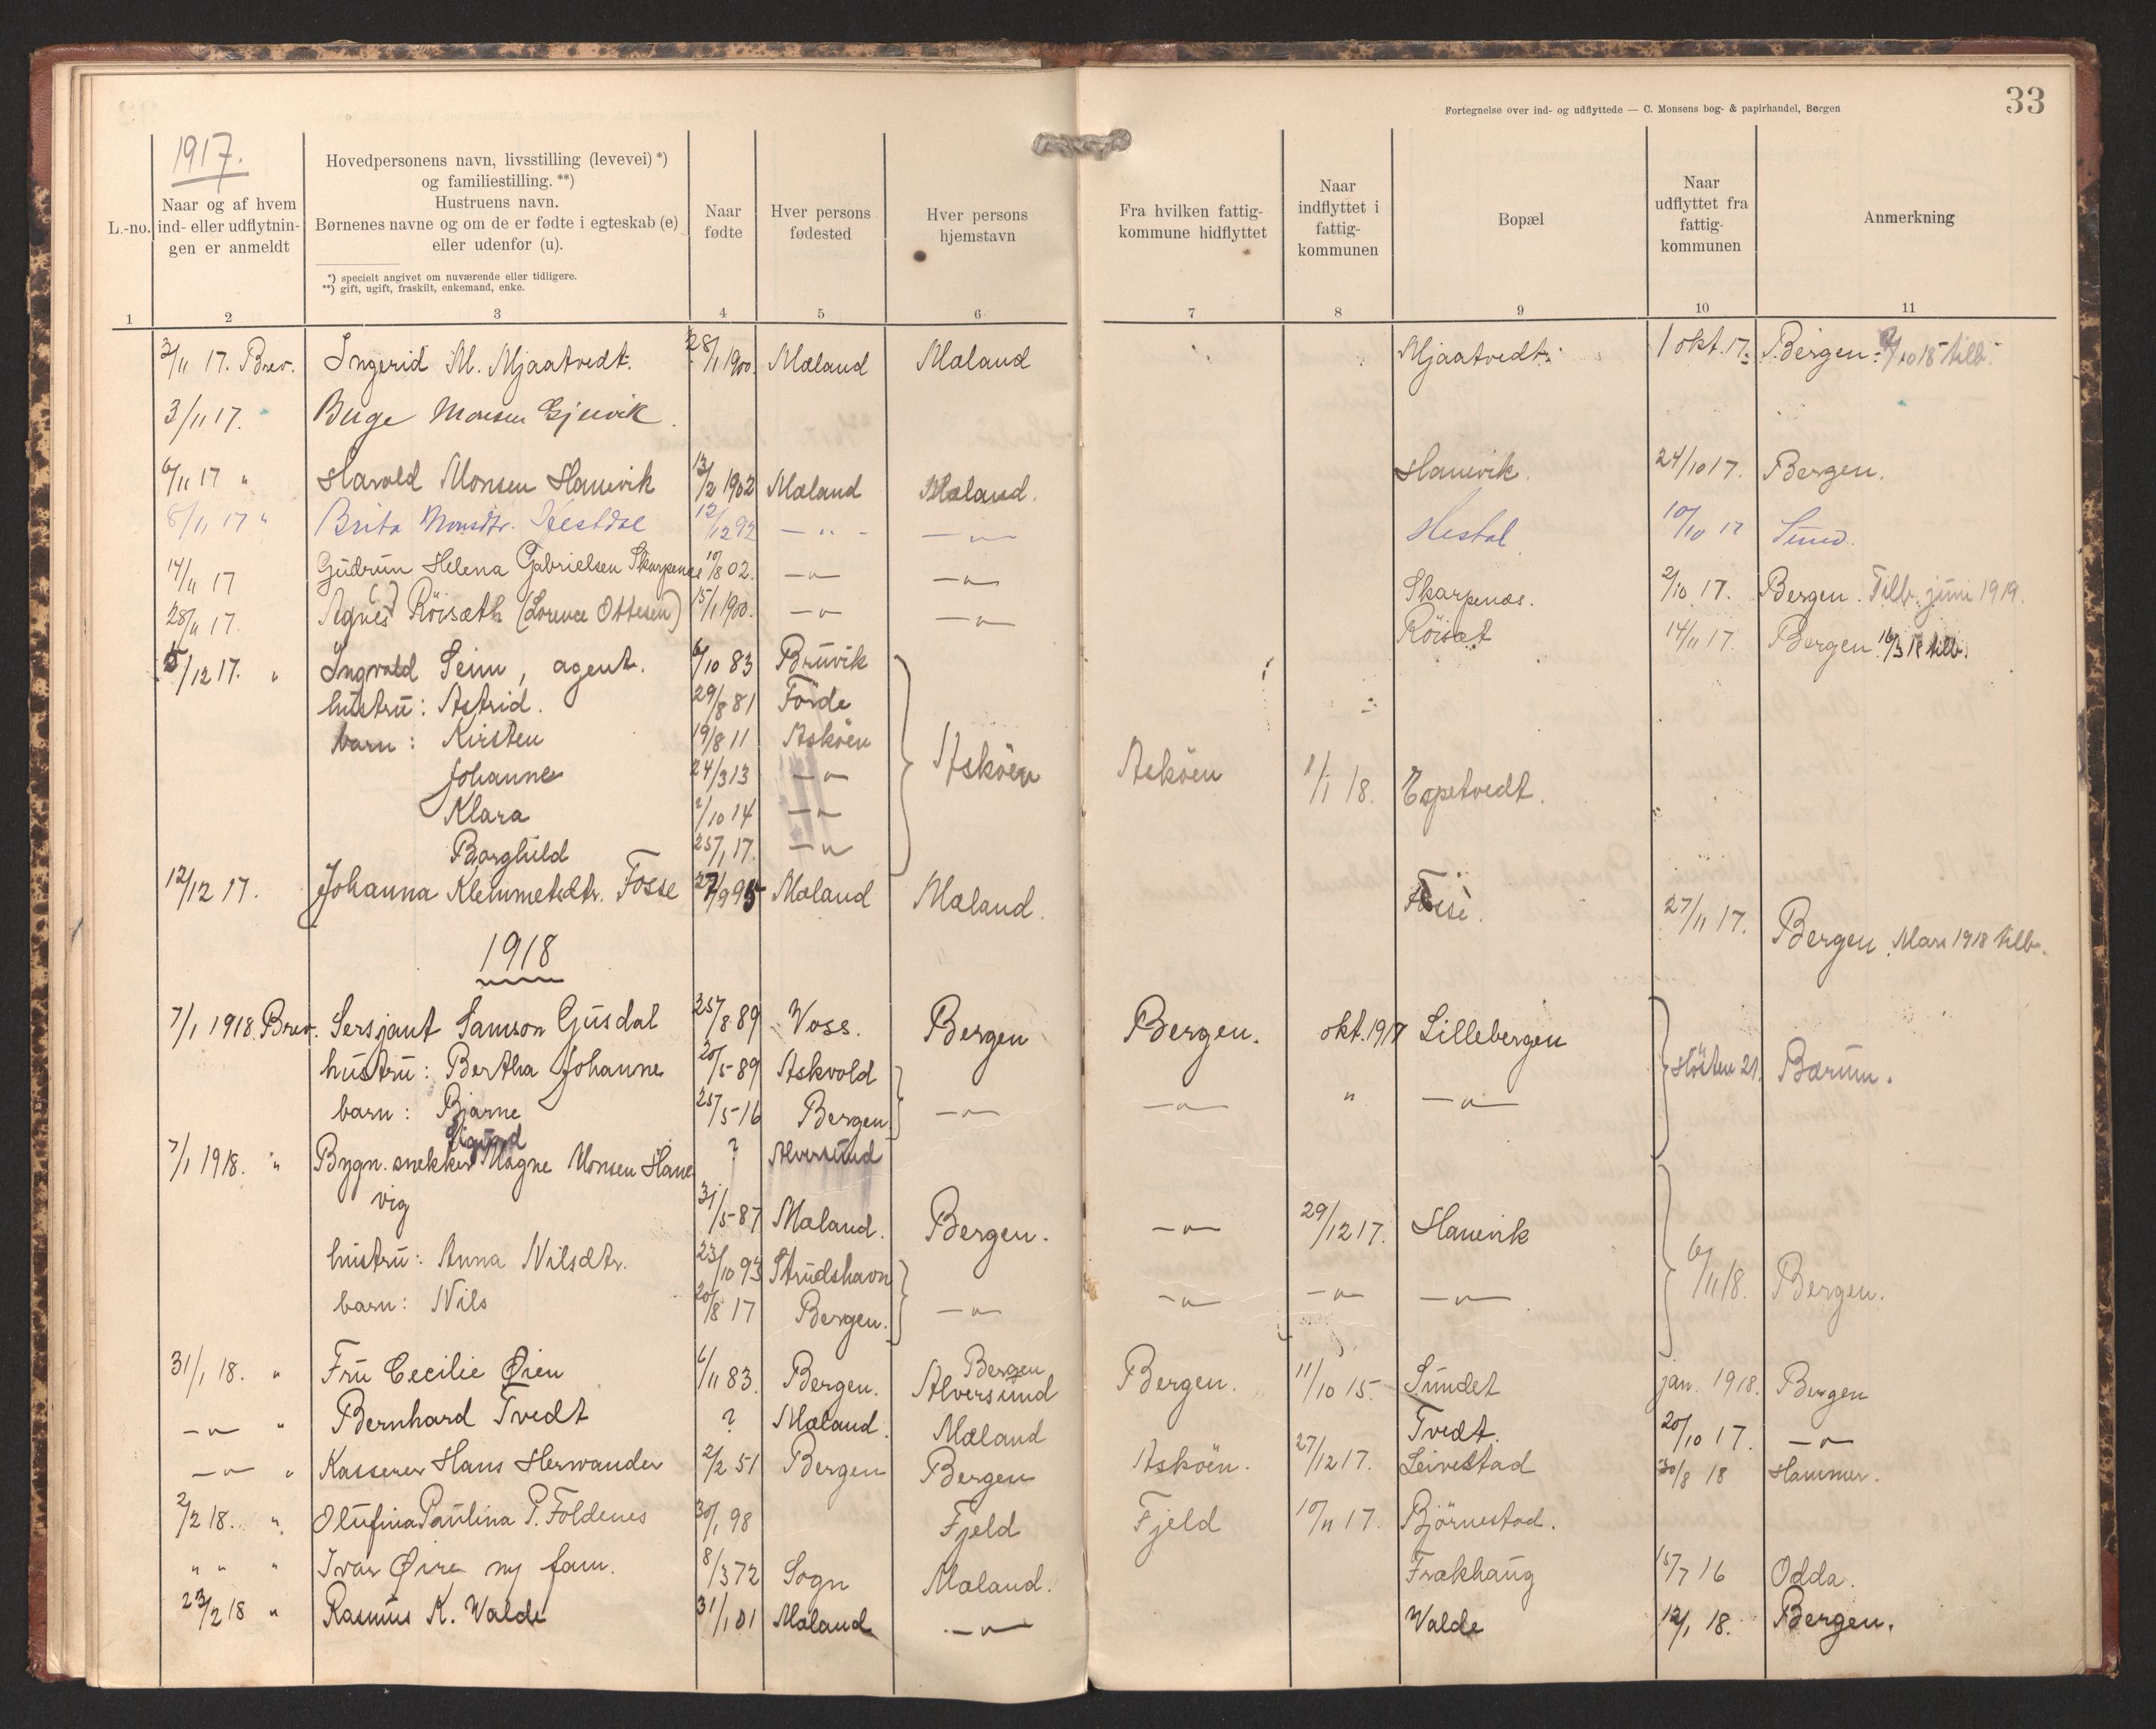 Fortegnelse over ind- og udflyttede — C. Monsens bog- & papirhandel, Bergen 33
1917.
L.-no. Naar og af hvem ind- eller udflytnin- gen er anmeldt
Hovedpersonens navn, livsstilling (levevei) *)
og familiestilling. **)
Hustruens navn.
Børnenes navne og om de er fødte i egteskab (e)
eller udenfor (u).
*) specielt angivet om nuværende eller tidligere.
**) gift, ugift, fraskilt, enkemand, enke.
Naar fødte
Hver persons fødested
Hver persons hjemstavn
Fra hvilken fattig- kommune hidflyttet
Naar indflyttet i fattig- kommunen
Bopæl
Naar udflyttet fra fattig- kommunen
Anmerkning
1 2 3 4 5 6 7 8 9 10 11
3/11 17. Brev. Ingerid M. Mjaatvedt. 28/1 1900. Mæland Mæland Mjaatvedt. 1 okt. 17. Bergen. /10 18 tilb.
3/11 17. " Monsen Gjervik.
6/11 17 " Harald Monsen Hanevik 13/2 1902 Mæland Mæland. Hanevik. 24/10 17. Bergen.
8/11 17 " Brita Monsdtr. Hestdal 12/12 92 — " — — " — Hestal 10/10 17 Sund.
14/11 17 Gudrun Helena Gabrielsen Skarpenes 10/8 02. — " — — " — Skarpenæs. 2/10 17. Bergen. Tilb. juni 1919.
28/11 17. Agnes (?) Röisæth (Lorence Ottesen) 15/1 1900. — " — — " — Röisæt 14/11 17. Bergen. 16/3 18 tilb.
5/12 17. " Ingvald Seim, agent. 6/10 83 Bruvik
hustru: Astrid. 29/8 81 Förde
barn: Kirsten 19/8 11 Asköen
Johanne 24/3 13 — " — Asköen Asköen 1/1 18. Espetvedt.
Klara 2/10 14 — " —
Borghild 25/1 17. — " —
12/12 17. Johanna Klemmetsdtr. Fosse 27/9 95 Mæland Mæland. Fosse. 27/11 17. Bergen. Mars 1918 tilb.
1918
7/1 1918. Brev. Sersjant Samson Gjusdal 25/8 89 Voss. Bergen Bergen. okt. 1917 Lillebergen
hustru: Bertha Johanne 20/5 89 Askvold Hösten 21. Bærum.
barn: Bjarne 25/5 16 Bergen — " — — " — " — " —
Sigurd ? Alversund
7/1 1918. " Bygn. snekker Magne Monsen Hane
vig 31/5 87 Mæland. Bergen. — " — 29/12 17. Hanevik
hustru: Anna Nilsdtr. 23/10 93 Strudshavn 6/11 18. Bergen.
barn: Nils 20/8 17 Bergen. — " — — " — — " — — " —
31/1 18. " Fru Cecilie Øien 6/11 83. Bergen. Bergen Alversund Bergen. 11/10 15. Sundet jan. 1918. Bergen
— " — " Bernhard Tvedt ? Mæland. Mæland Tvedt. 20/10 17. — " —
— " — " Kasserer Hans Herwander 2/2 51 Bergen Bergen Asköen. 27/12 17. Leivestad 30/8 18 Hammer.
2/2 18. " Olufina Paulina P. Foldenes 30/1 98 Fjeld Fjeld 10/11 17. Björnestad.
" " " Ivar Øire m/ fam. 8/3 72 Sogn Mæland. Frækhaug 15/7 16 Odda.
23/2 18 " Rasmus K. Valde 31/1 01 Mæland — " — Valde 12/1 18. Bergen.